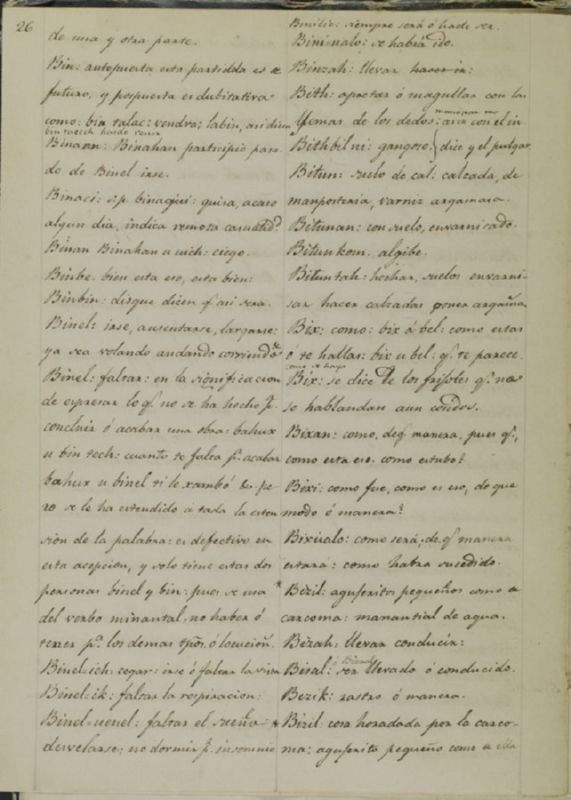 26
de una y otra parte.
Bin: antepuesta esta partidda es de
futuro, y pospuesta es dubitativa
como: bin talac: vendra; labin, asi dicen
bin taccech hasde venir
Binaan: Binahan participio pasa
do de Binel irse.
Binaci: s.p. binaqui: quisa, acaso
algun dia, indica remota casualid.^d
Binan Binahan u uich: ciego.
Binbe. bien esta eso, esta bien:
Binbin: disque dicen q.^e asi sera.
Binel: irse, ausentarse, largarse:
ya sea volando andando corriendo &.^a
Binel: faltar: en la significacion
de espresar lo q.^e no se ha hecho p.^a
concluir ó acabar una obra: bahux
u bin tech: cuanto te falta p.^a acabar
bahux u binel ti le xambó &. pe-
ro se le ha estendido á toda la esten
sion de la palabra: es defectivo en
esta acepcion, y solo tiene estas dos
personas binel y bin: pues se usa
del verbo minantal, no haber ó
tener p.^a los demas tpos. ó locucion.
Binel-ich: cegar: irse ó faltar la vista
Binel-ik: faltar la respiracion:
Binel-uenel: faltar el sueño
desvelarse; no dormir p.^r insomnio
siempre será ó hade ser.
Biniualo: se habrá ido.
Binzah: llevar hacer ir:
Bith: apretar ó magullar con las
yemas de los dedos: asir con el in
Bithbil ni: gangoso: dice y el pulgar
Bitun: suelo de cal: calzada, de
manposteria, varniz argamasa.
Bitunan: con suelo, envarnisado.
Bitunkom. algibe.
Bituntah: hechar, suelos envarni-
sar hacer calzadas poner argam.^a
Bix: como: bix á bel: como estas
ó te hallas: bix u bel: q.^e te parece.
Bix: se dice de los frisoles q.^e no
se hablandan aun cosidos.
Bixan: como, de q.^e manera, pues q.^e,
como esta eso. como estubo?
Bixi: como fue, como es eso, de que
modo ó manera?
Bixualo: como será, de q.^e manera
estara: como habra sucedido.
* Bezil: aguseritos pequeños como de
carcoma: manantial de agua.
Bizah: llevar conducir:
Bizal: ser llevado ó conducido.
Bezik: rastro ó manera.
* Bizil cosa horadada por la carco-
ma: aguserito pequeño como de ella